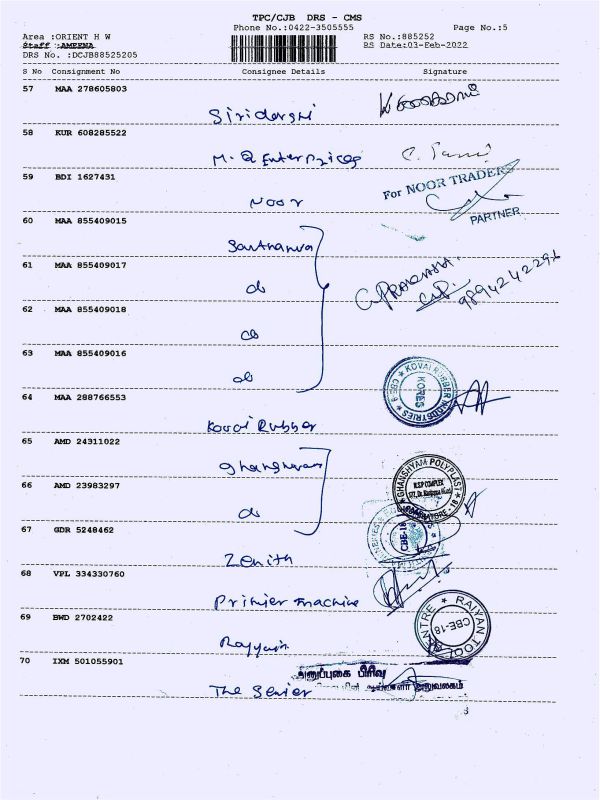 TPC/CJB DRS - CMS
Phone No.:0422-3505555 Page No.:5
Area :ORIENT H W RS No.:885252
Staff :AMEENA RS Date:03-Feb-2022
DRS No. :DCJB88525205
S No Consignment No Consignee Details Signature
57 MAA 278605803
Siridarshi
58 KUR 608285522
M.Q Enterprices
59 BDI 1627431
Noor
For NOOR TRADERS
PARTNER
60 MAA 855409015
61 MAA 855409017
do
G. PRAKASHA.
9894242296
62 MAA 855409018
do
63 MAA 855409016
do
KOVAI RUBBER INDUSTRIES
CBE-
KORES
64 MAA 288766553
Kovai Rubber
65 AMD 24311022
GHANSHYAM POLYPLAST
N.S.P COMPLEX
COIMBATORE - 18
66 AMD 23983297
do
CBE-18
67 GDR 5248462
Zenith
68 VPL 334330760
Primier machine
69 BWD 2702422
Rayyain
RAIYAN TOOL CENTRE
CBE-18
70 IXM 501055901
The Senior
அனுப்புகை பிரிவு
அலுவலகம்